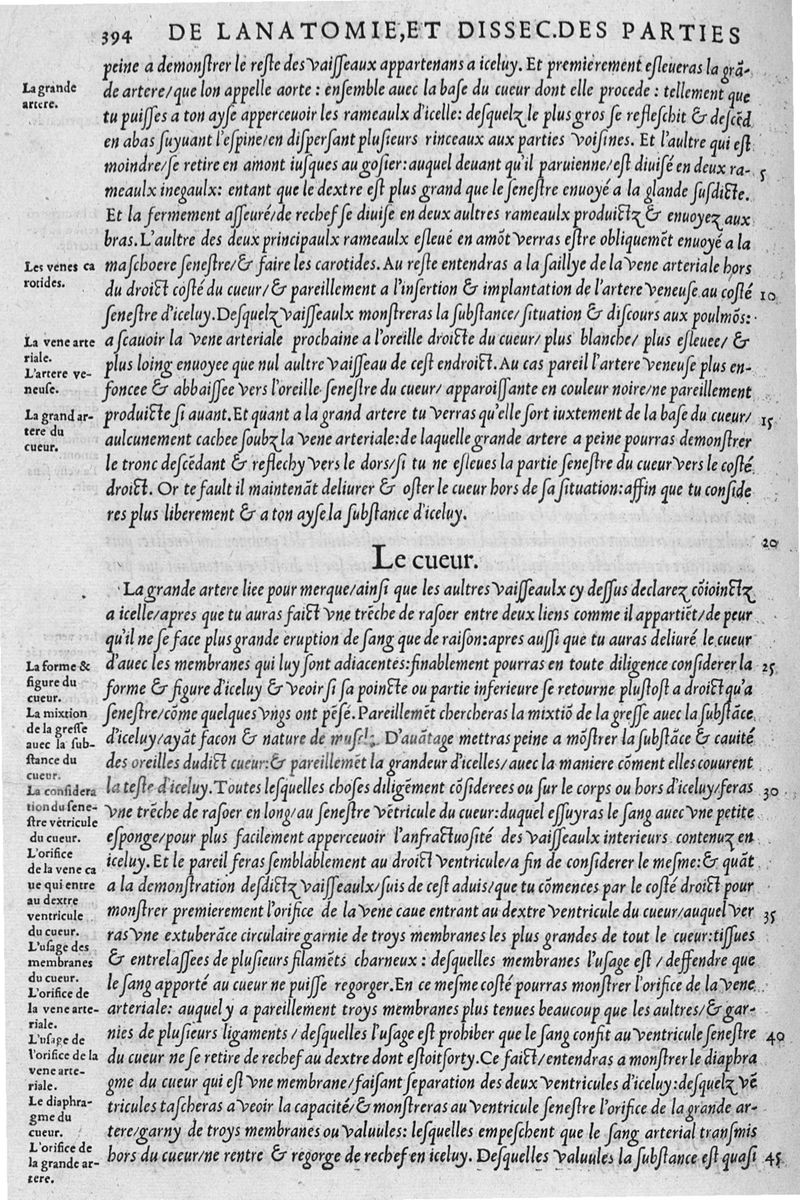 394 DE LANATOMIE, ET DISSEC. DES PARTIES
peine a demonſtrer le reſte des vaiſſeaux appartenans a iceluy. Et premierement eſleueras la grã-
La grande
artere.
de artere/que lon appelle aorte : enſemble auec la baſe du cueur dont elle procede : tellement que
tu puiſſes a ton ayſe apperceuoir les rameaulx d'icelle: deſquelz le plus gros ſe refleſchit & deſcẽd
en abas ſuyuant l'eſpine/en diſperſant pluſieurs rinceaux aux parties voiſines. Et l'aultre qui eſt
moindre/ſe retire en amont iuſques au goſier: auquel deuant qu'il paruienne/eſt diuiſé en deux ra- 5
meaulx inegaulx: entant que le dextre eſt plus grand que le ſeneſtre enuoyé a la glande ſuſdicte.
Et la fermement aſſeuré/de rechef ſe diuiſe en deux aultres rameaulx produictz & enuoyez aux
bras. L'aultre des deux principaulx rameaulx eſleué en amõt verras eſtre obliquemẽt enuoyé a la
Les venes ca
rotides.
maſchoere ſeneſtre/& faire les carotides. Au reſte entendras a la ſaillye de la vene arteriale hors
du droict coſté du cueur/& pareillement a l'inſertion & implantation de l'artere veneuſe au coſté 10
ſeneſtre d'iceluy. Deſquelz vaiſſeaulx monſtreras la ſubſtance/ſituation & diſcours aux poulmõs:
La vene arte
riale.
a ſcauoir la vene arteriale prochaine a l'oreille droicte du cueur/ plus blanche/ plus eſleuee/ &
plus loing enuoyee que nul aultre vaiſſeau de ceſt endroict. Au cas pareil l'artere veneuſe plus en-
L'artere ve-
neuſe.
foncee & abbaiſſee vers l'oreille ſeneſtre du cueur/ apparoiſſante en couleur noire/ne pareillement
La grand ar-
tere du
cueur.
produicte ſi auant. Et quant a la grand artere tu verras qu'elle ſort iuxtement de la baſe du cueur/ 15
aulcunement cachee ſoubz la vene arteriale: de laquelle grande artere a peine pourras demonſtrer
le tronc deſcẽdant & reflechy vers le dors/ſi tu ne eſleues la partie ſeneſtre du cueur vers le coſté
droict. Or te fault il maintenãt deliurer & oſter le cueur hors de ſa ſituation: affin que tu conſide
res plus liberement & a ton ayſe la ſubſtance d'iceluy.
20
Le cueur.
La grande artere liee pour merque/ainſi que les aultres vaiſſeaulx cy deſſus declarez cõioinctz
a icelle/apres que tu auras faict vne trẽche de raſoer entre deux liens comme il appartiẽt/de peur
qu'il ne ſe face plus grande eruption de ſang que de raiſon: apres auſſi que tu auras deliuré le cueur
La forme &
figure du
cueur.
d'auec les membranes qui luy ſont adiacentes: finablement pourras en toute diligence conſiderer la 25
forme & figure d'iceluy & veoir ſi ſa poincte ou partie inferieure ſe retourne pluſtoſt a droict qu'a
La mixtion
de la greſſe
auec la ſub-
ſtance du
cueur.
ſeneſtre/cõme quelques vngs ont pẽſé. Pareillemẽt chercheras la mixtiõ de la greſſe auec la ſubſtãce
d'iceluy/ayãt facon & nature de muſcl. D'auãtage mettras peine a mõſtrer la ſubſtãce & cauité
des oreilles dudict cueur: & pareillemẽt la grandeur d'icelles/auec la maniere cõment elles couurent
La conſidera
tion du ſene-
ſtre vẽtricule
du cueur.
la teſte d'iceluy. Toutes leſquelles choſes diligẽment cõſiderees ou ſur le corps ou hors d'iceluy/feras 30
vne trẽche de raſoer en long/au ſeneſtre vẽtricule du cueur: duquel eſſuyras le ſang auec vne petite
eſponge/pour plus facilement apperceuoir l'anfractuoſité des vaiſſeaulx interieurs contenuz en
L'orifice
de la vene ca
ue qui entre
au dextre
ventricule
du cueur.
iceluy. Et le pareil feras ſemblablement au droict ventricule/a fin de conſiderer le meſme: & quãt
a la demonſtration deſdictz vaiſſeaulx/ſuis de ceſt aduis/que tu cõmences par le coſté droict pour
monſtrer premierement l'orifice de la vene caue entrant au dextre ventricule du cueur/auquel ver 35
ras vne extuberãce circulaire garnie de troys membranes les plus grandes de tout le cueur: tiſſues
L'uſage des
membranes
du cueur.
& entrelaſſees de pluſieurs filamẽts charneux : deſquelles membranes l'uſage eſt / deffendre que
le ſang apporté au cueur ne puiſſe regorger. En ce meſme coſté pourras monſtrer l'orifice de la vene
L'orifice de
la vene arte-
riale.
arteriale: auquel y a pareillement troys membranes plus tenues beaucoup que les aultres/& gar-
L'uſage de
l'orifice de la
vene arte-
riale.
nies de pluſieurs ligaments / deſquelles l'uſage eſt prohiber que le ſang confit au ventricule ſeneſtre 40
du cueur ne ſe retire de rechef au dextre dont eſtoit ſorty. Ce faict/entendras a monſtrer le diaphra
Le diaphra-
gme du
cueur.
gme du cueur qui eſt vne membrane/faiſant ſeparation des deux ventricules d'iceluy: deſquelz vẽ
tricules taſcheras a veoir la capacité/& monſtreras au ventricule ſeneſtre l'orifice de la grande ar-
L'orifice de
la grande ar-
tere.
tere/garny de troys membranes ou valuules: leſquelles empeſchent que le ſang arterial tranſmis
hors du cueur/ne rentre & regorge de rechef en iceluy. Deſquelles valuules la ſubſtance eſt quaſi 45